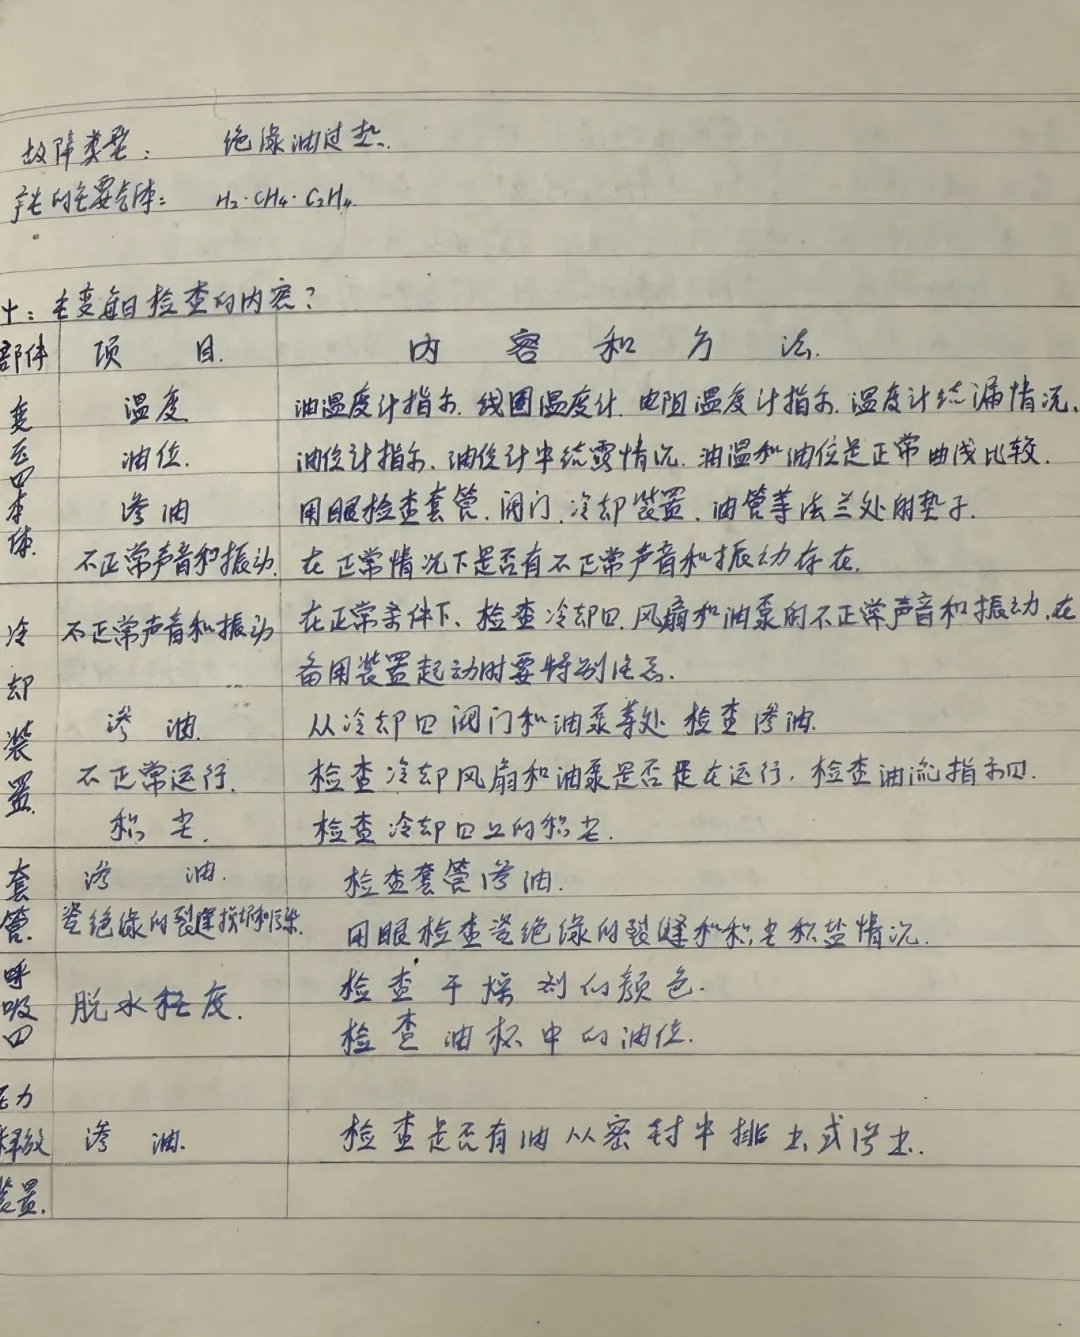 故障类型： 绝缘油过热.
产生的主要气体： H₂·CH₄·C₂H₄.
十：主变每日检查的内容？
部件 项 目. 内 容 和 方 法.
变压四本体. 温度 油温度计指示. 线圈温度计. 电阻温度计指示. 温度计结漏情况.
油位. 油位计指示. 油位计中结露情况. 油温和油位是正常曲线比较.
渗油 用眼检查套管. 阀门. 冷却装置. 油管等法兰处的垫子.
不正常声音和振动. 在正常情况下是否有不正常声音和振动存在.
冷却装置. 不正常声音和振动 在正常条件下、检查冷却四. 风扇和油泵的不正常声音和振动. 在
备用装置起动时要特别注意.
渗 油. 从冷却四 阀门和油泵等处 检查渗油.
不正常运行. 检查冷却风扇和油泵是否是在运行. 检查油流指示四.
积 尘. 检查冷却四上的积尘.
套管. 渗 油. 检查套管渗油.
瓷绝缘的裂缝损坏和污染. 用眼检查瓷绝缘的裂缝和积尘积盐情况.
呼吸四 脱水程度. 检查干燥剂的颜色.
检查油杯中的油位.
压力释放装置. 渗 油. 检查是否有油从密封中排出或渗出.